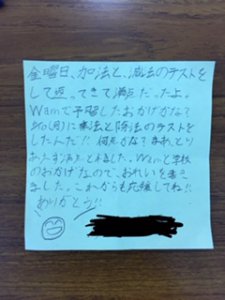 金曜日、加法と、減法のテストを
して返ってきて満点だったよ。
Wamで予習したおかげかな?
(月)に乗法と除法のテストを
したんだ!! 何点かな?
また満点と
のおかげなので、おれいを書き
ました。これからも応援してね!!
ありがとう!!